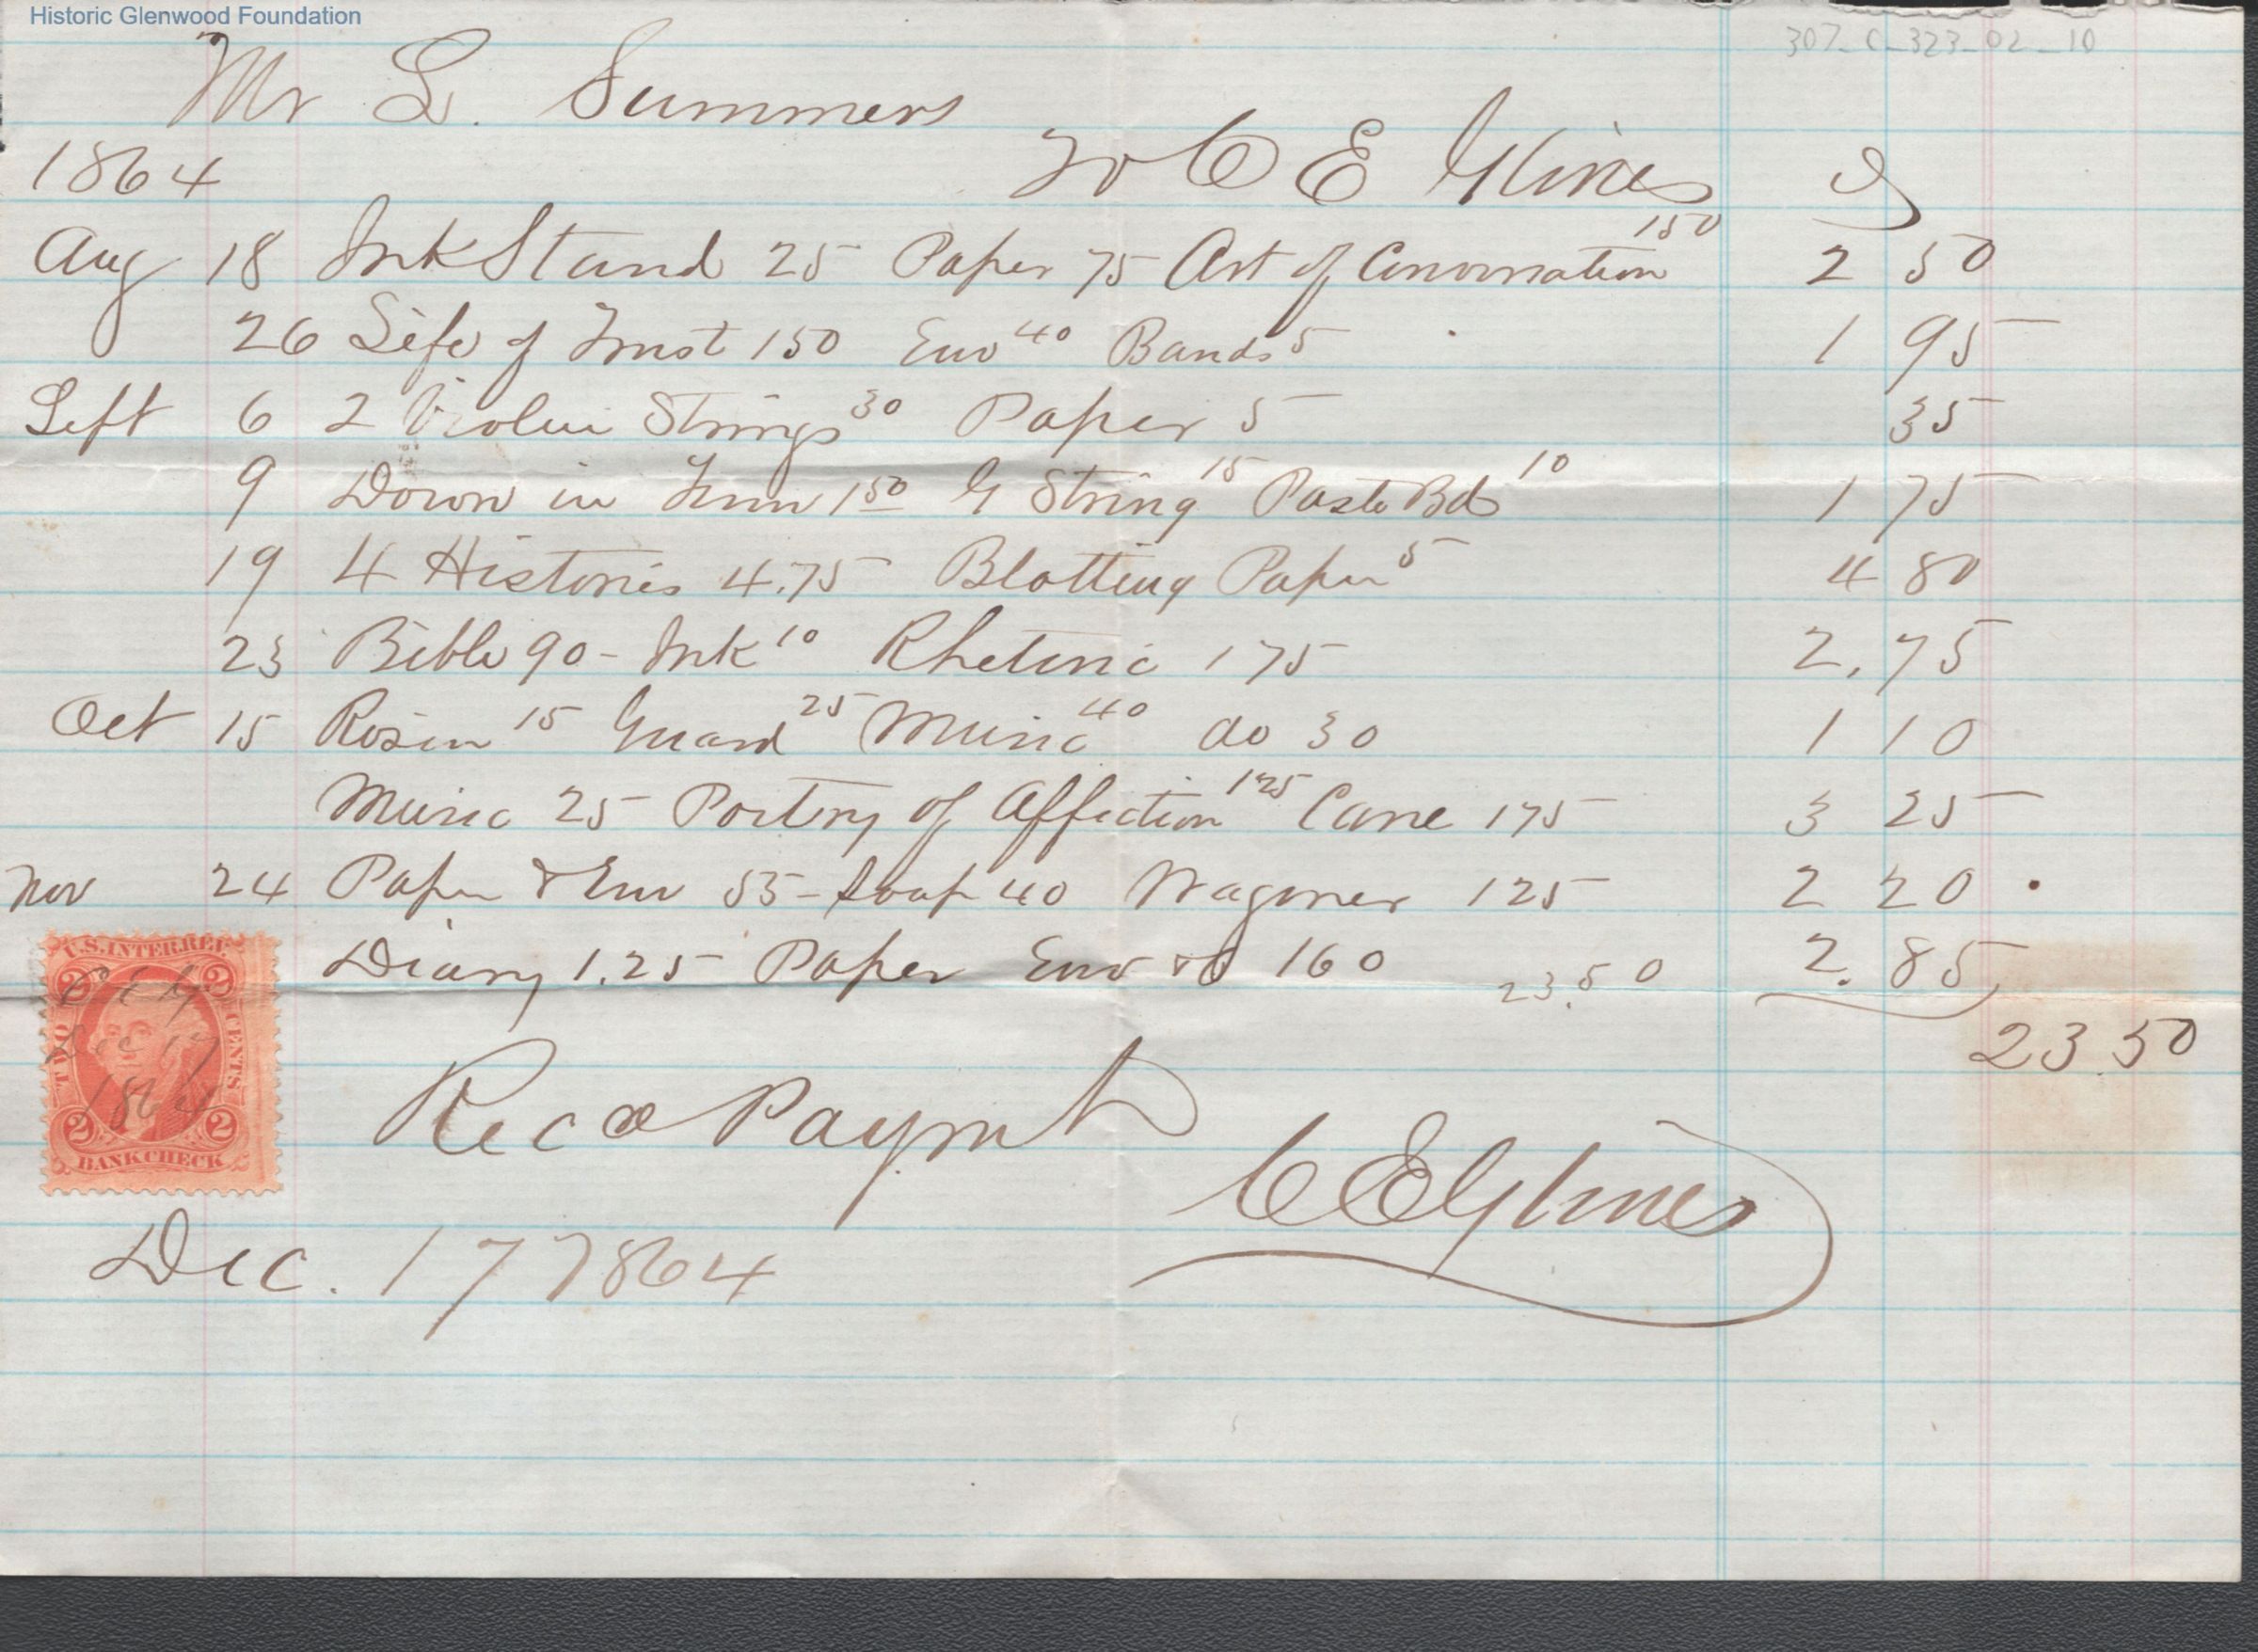 Historic Glenwood Foundation
307_C_323_02_10
Mr L. Summers
1864 To C E Glines Dr
Aug 18 Ink Stand 25 Paper 75 Art of Conversation 150 2 50
26 Life of Trust 150 Env 40 Bands 5 1 95
Sept 6 2 Violin Strings 30 Paper 5 35
9 Down in Tenn 1 50 G String 15 Paste Bd 10 1 75
19 4 Histories 4.75 Blotting Paper 5 4 80
23 Bible 90 - Ink 10 Rhetoric 175 2.75
Oct 15 Rosin 15 Guard 25 Music 40 do 30 1 10
Music 25 Poetry of Affection 125 Cane 175 3 25
Nov 24 Paper & Env 55 - Soap 40 Wagner 125 2 20
Diary 1.25 Paper Env &c 160 23.50 2.85
23.50
U.S. INTER. REV.
2 2
C E G
Dec 17
1864
TWO CENTS
2 2
BANK CHECK
Recd Paymt
C E Glines
Dec. 17 1864